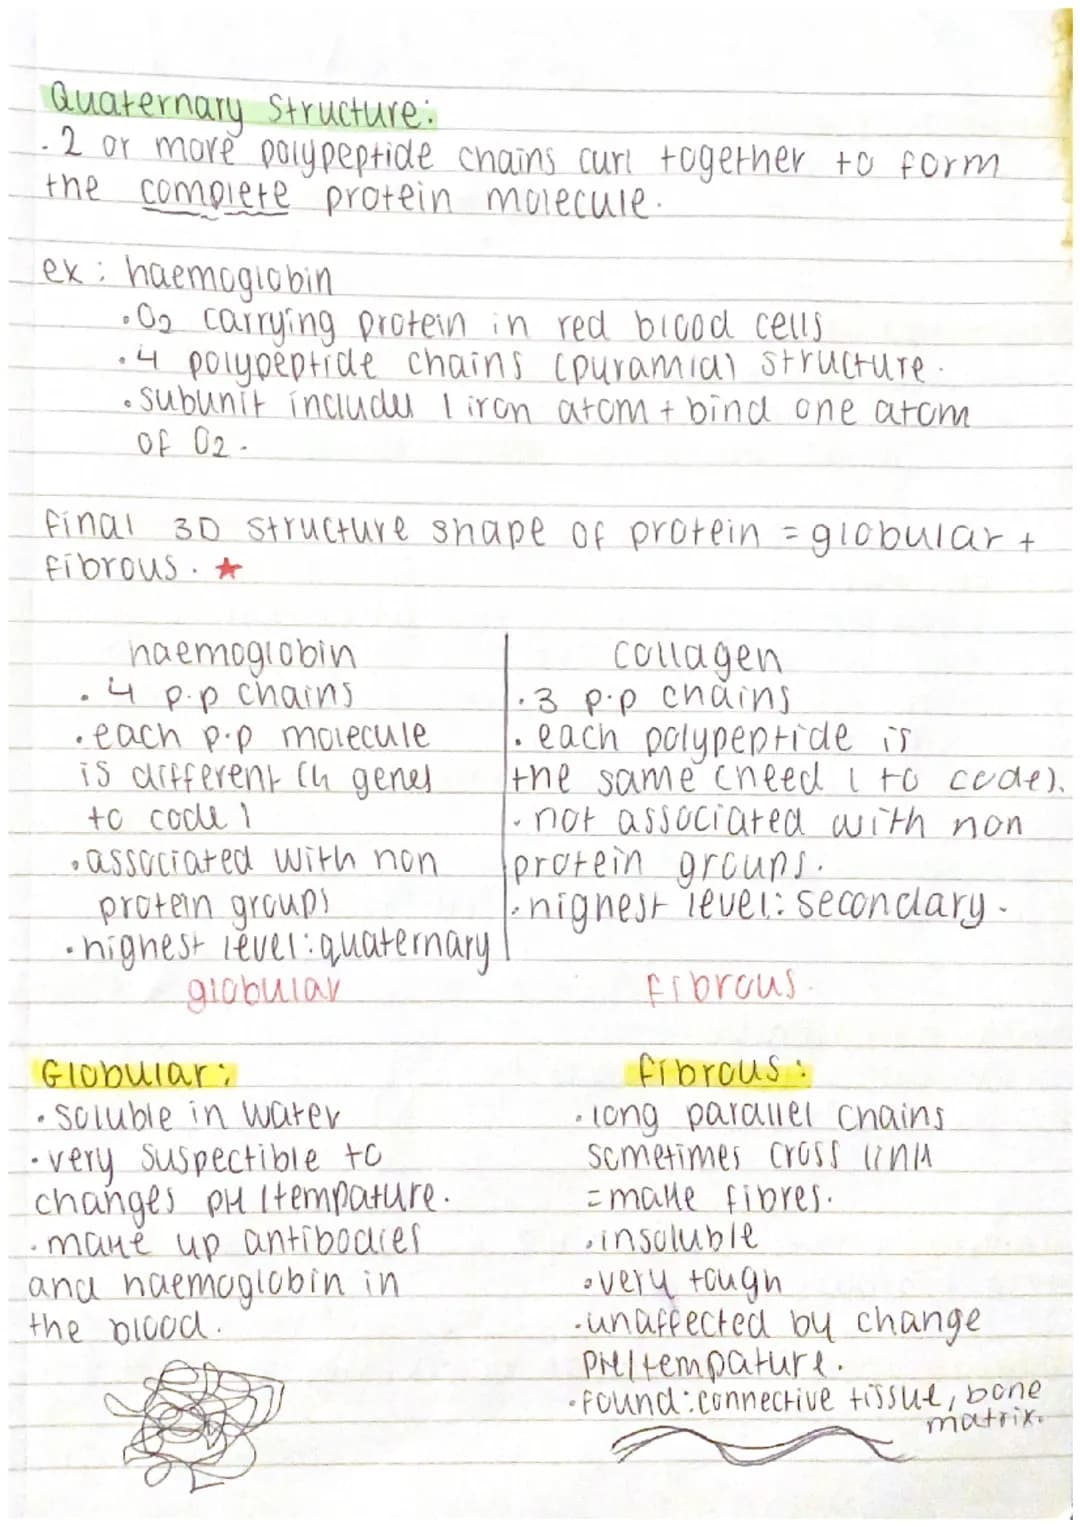 Quaternary Structure:
· 2 or more polypeptide chains curl together to form
the complete protein molecule.
ex: haemoglobin
· O2 carrying protein in red blood cells
· 4 polypeptide chains (puramidal structure.
· subunit includes 1 iron atom + bind one atom
of O2.
final 3D structure shape of protein = globular +
fibrous. ★
haemoglobin
· 4 p.p chains
· each p.p molecule
is different (4 genes
to code)
· associated with non
protein groups
· highest level: quaternary
globular
collagen
· 3 p.p chains
· each polypeptide is
the same (need 1 to code).
· not associated with non
protein groups.
· highest level: secondary.
fibrous.
Globular:
· soluble in water
· very suspectible to
changes pH/tempature.
· make up antibodies
and haemoglobin in
the blood.
fibrous:
· long parallel chains
sometimes cross link
= make fibres.
· insoluble
· very tough
· unaffected by change
pH/tempature.
· found: connective tissue, bone
matrix.